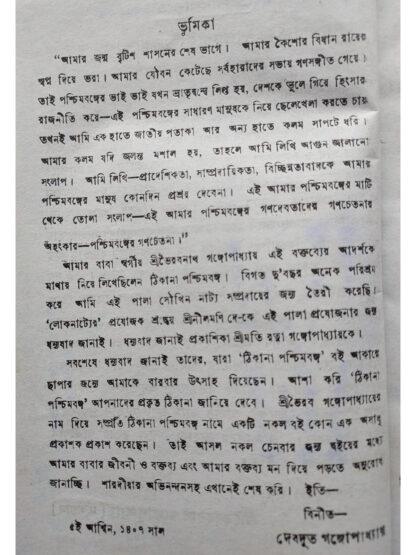 ভূমিকা
"আমার জন্ম বৃটিশ শাসনের শেষ ভাগে। আমার কৈশোর বিধান রায়ের
স্বপ্ন দিয়ে ভরা। আমার যৌবন কেটেছে সর্বহারাদের সভায় গণসঙ্গীত গেয়ে।
তাই পশ্চিমবঙ্গের ভাই ভাই যখন ভ্রাতৃদ্বন্দ্বে লিপ্ত হয়, দেশকে ভুলে গিয়ে হিংসার
রাজনীতি করে—এই পশ্চিমবঙ্গের সাধারণ মানুষকে নিয়ে ছেলেখেলা করতে চায়
তখনই আমি এক হাতে জাতীয় পতাকা আর অন্য হাতে কলম সাপটে ধরি।
আমার কলম যদি জলন্ত মশাল হয়, তাহলে আমি লিখি আগুন জ্বালানো
সংলাপ। আমি লিখি—প্রাদেশিকতা, সাম্প্রদায়িকতা, বিচ্ছিন্নতাবাদকে আমার
পশ্চিমবঙ্গের মানুষ কোনদিন প্রশ্রয় দেবেনা। এই আমার পশ্চিমবঙ্গের মাটি
থেকে তোলা সংলাপ—এই আমার পশ্চিমবঙ্গের গণদেবতাদের গণচেতনার
অহংকার—পশ্চিমবঙ্গের গণচেতনা।"
আমার বাবা স্বর্গীয় শ্রীভৈরবনাথ গঙ্গোপাধ্যায় এই বক্তব্যের আদর্শকে
মাথায় নিয়ে লিখেছিলেন ঠিকানা পশ্চিমবঙ্গ। বিগত দু'বছর অনেক পরিশ্রম
করে আমি এই পালা সৌখিন নাট্য সম্প্রদায়ের জন্য তৈরী করেছি।
'লোকনাট্যের' প্রযোজক শ্রদ্ধেয় শ্রীনীলমণি দে-কে এই পালা প্রযোজনার জন্য
ধন্যবাদ জানাই। ধন্যবাদ জানাই প্রকাশিকা শ্রীমতি রত্না গঙ্গোপাধ্যায়কে।
সবশেষে ধন্যবাদ জানাই তাদের, যারা 'ঠিকানা পশ্চিমবঙ্গ' বই আকারে
ছাপার জন্যে আমাকে বারবার উৎসাহ দিয়েছেন। আশা করি 'ঠিকানা
পশ্চিমবঙ্গ' আপনাদের প্রকৃত ঠিকানা জানিয়ে দেবে। শ্রীভৈরব গঙ্গোপাধ্যায়ের
নাম দিয়ে সম্প্রতি ঠিকানা পশ্চিমবঙ্গ নামে একটি নকল বই কোন এক অসাধু
প্রকাশক প্রকাশ করেছেন। তাই আসল নকল চেনবার জন্য বইয়ের মধ্যে
আমার বাবার জীবনী ও বক্তব্য এবং আমার বক্তব্য মন দিয়ে পড়তে অনুরোধ
জানাচ্ছি। শারদীয়ার অভিনন্দনসহ এখানেই শেষ করি। ইতি—
বিনীত—
৫ই আশ্বিন, ১৪০৭ সাল
দেবদূত গঙ্গোপাধ্যায়